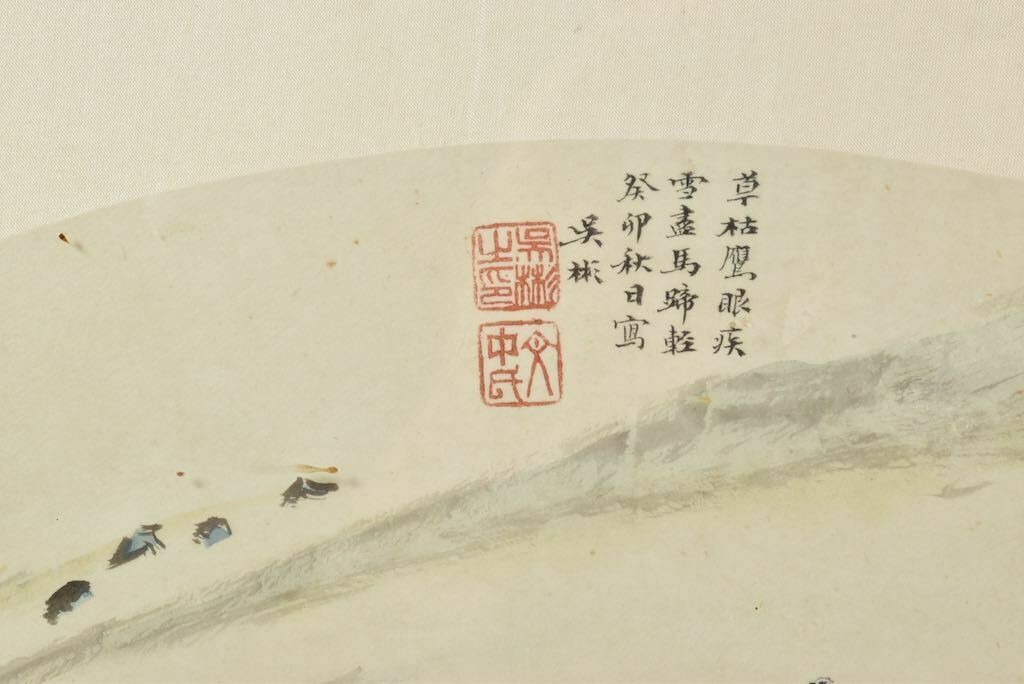 草枯鷹眼疾
雪盡馬蹄輕
癸卯秋日寫
吳彬
吳彬之印
文中氏